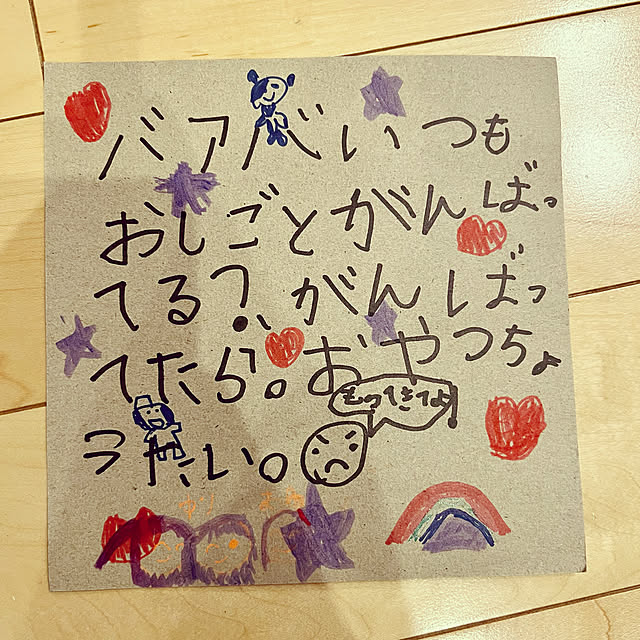 バアバいつも
おしごとがんばっ
てる?、がんばっ
てたら。おやつちょ
うたい。
もってきてよ!